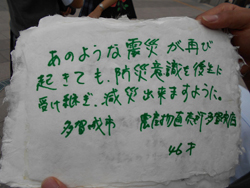 あのような震災が再び
起きても、防災意識を後世に
受け継ぎ、減災出来ますように。
多賀城市 農産物直売所 多賀城店
46才